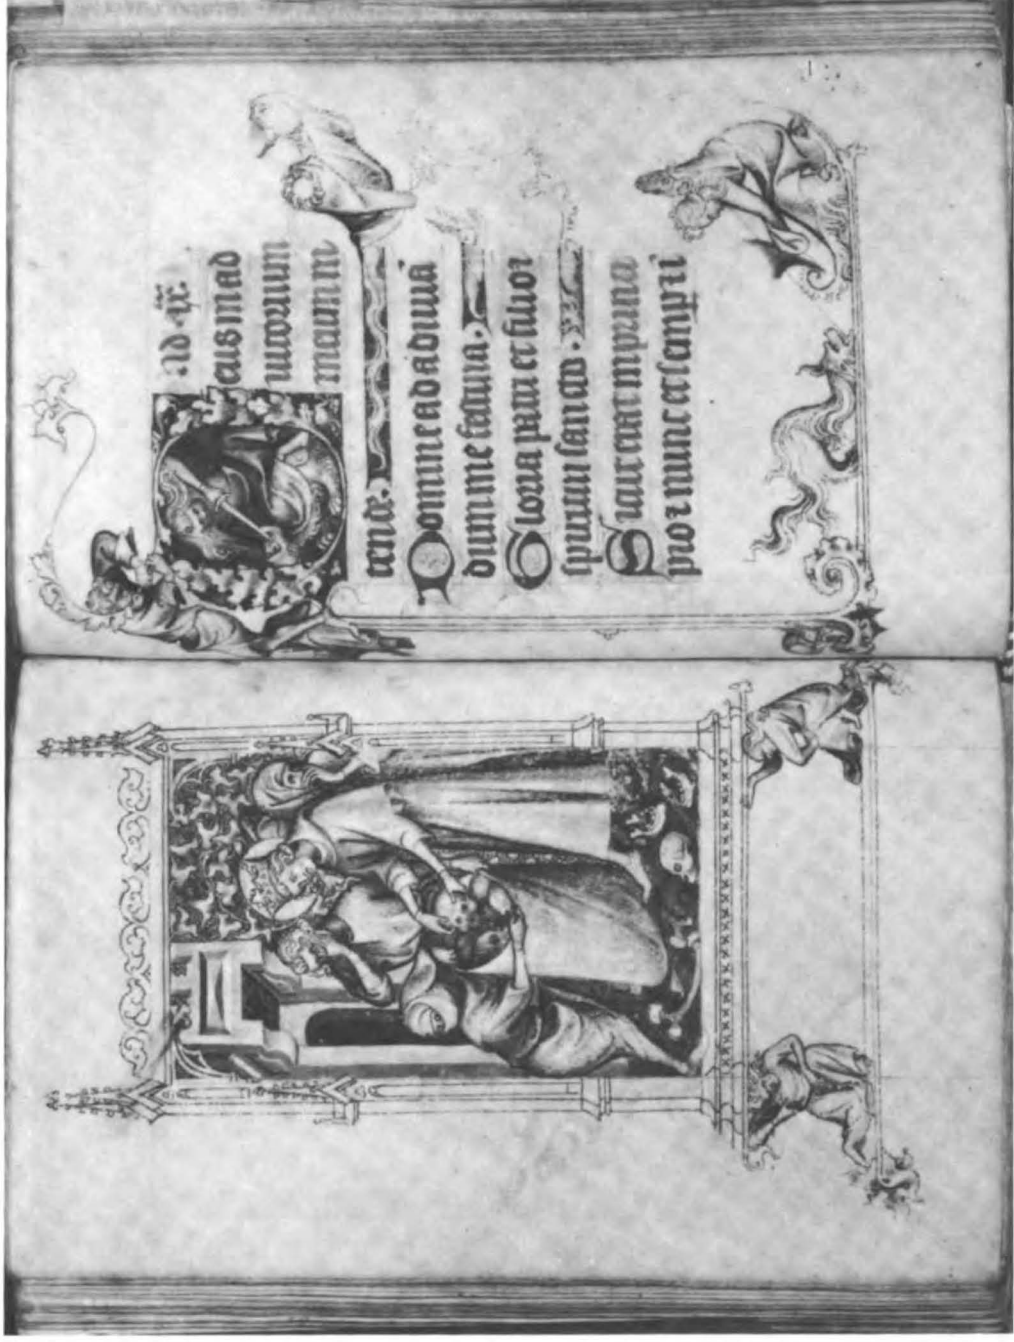 ad · ix
Deus in ad
iutorium
meum in
tende.
Domine ad adiuua
dum me festina.
Gloria patri et filio ⁊
spiritui sancto.
Sicut erat in princi
pio ⁊ nunc et semp